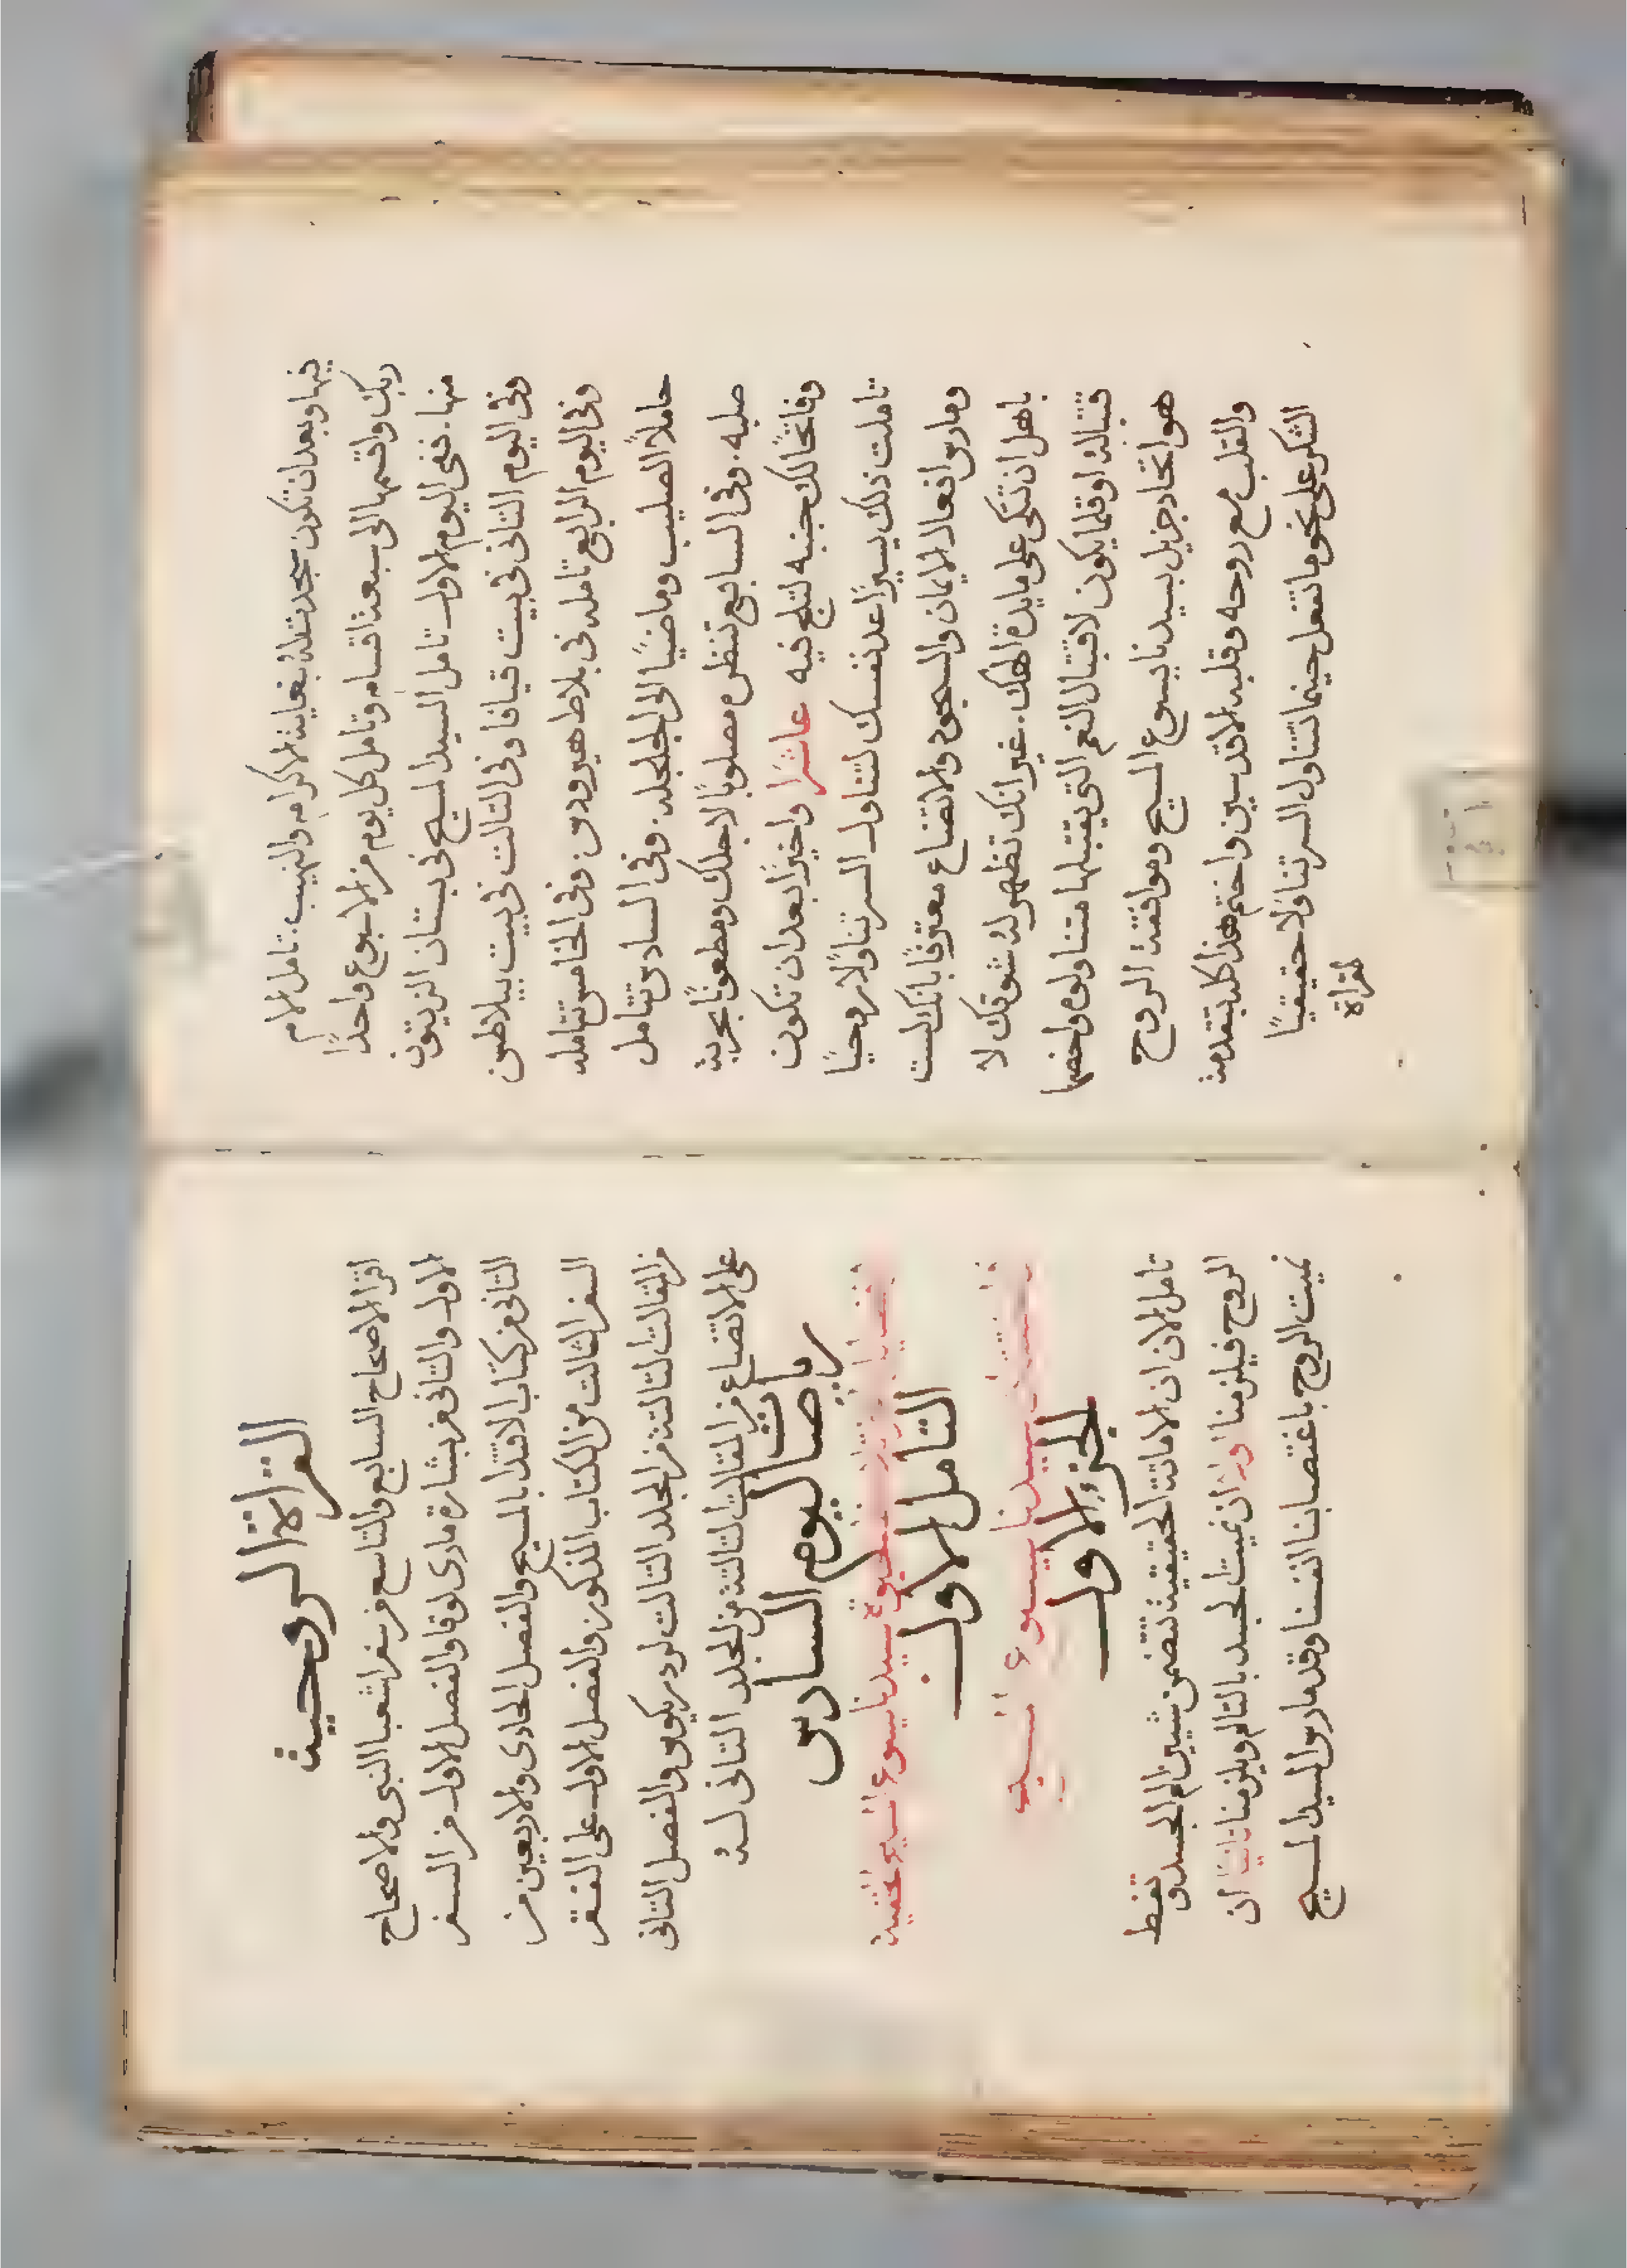 فيها وبعد ان تكون سجدت لله بغاية الاكرام والتهيب. تامل الام
ربك واقسمها الى سبعة اقسام وتامل كل يوم من الاسبوع واحدًا
منها. ففى اليوم الاول تامل السيد المسيح فى بستان الزيتون
وفى اليوم الثانى فى بيت قيافا وفى الثالث فى بيت بيلاطس
وفى اليوم الرابع تامله فى بلاط هيرودس. وفى الخامس تتامله
حاملًا الصليب وماضيًا الى الجلجلة. وفى السادس تتامل
صلبه. وفى السابع تنظره مصلوبًا لاجلك ومطعونًا بحربة
وفاتحًا لك جنبه لتلج فيه عاشرًا واخيرًا بعد ان تكون
تاملت ذلك يسيرًا عد نفسك لتناول السر تناولًا روحيًا
ومارس افعال الايمان والسجود والاتضاع معترفًا بانك لست
باهل ان تتكى على مايدة الهك. غير انك تظهر له شوقك لا
قتباله او قلما يكون لاقتبال النعم التى يقتبلها متناولوه واخصها
هو اتحاد جزيل بسيدنا يسوع المسيح وموافقة الروح
والقلب مع روحه وقلبه الاقدسين واختم هذا كله بتقدمة
الشكر على نحو ما تفعل حينما تتناول السر تناولًا حقيقيًا
لقراة
القراة الروحية
اقرا الاصحاح السابع والتاسع من سفر اشعيا النبى والاصحاح
الاول والثانى من بشارة مارى لوقا والفصل الاول من السفر
الثانى من كتاب الاقتدا بالمسيح والفصل الحادى والاربعين من
السفر الثالث من الكتاب المذكور والفصل الاول على الفقر
من المقالة الثالثة من المجلد الثالث لرودريكوس والفصل الثانى
على الاتضاع من المقالة الثالثة من المجلد الثانى له
رياضات اليوم السادس
سيدنا يسوع المسيح الخفية
التامل الاول
سيدنا يسوع المسيح
الجزء الاول
تامل الان ان الاماتة الحقيقية تتضمن شيين الم الجسد وتغط
الروح فيلزمنا اولًا ان نميت الجسد بالتالم ويلزمنا ثانيًا ان
نميت الروح باغتصابنا انفسنا وقد مارس السيد المسيح